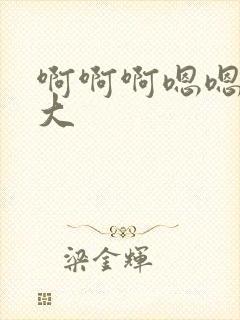 啊啊啊嗯嗯
大
梁金輝